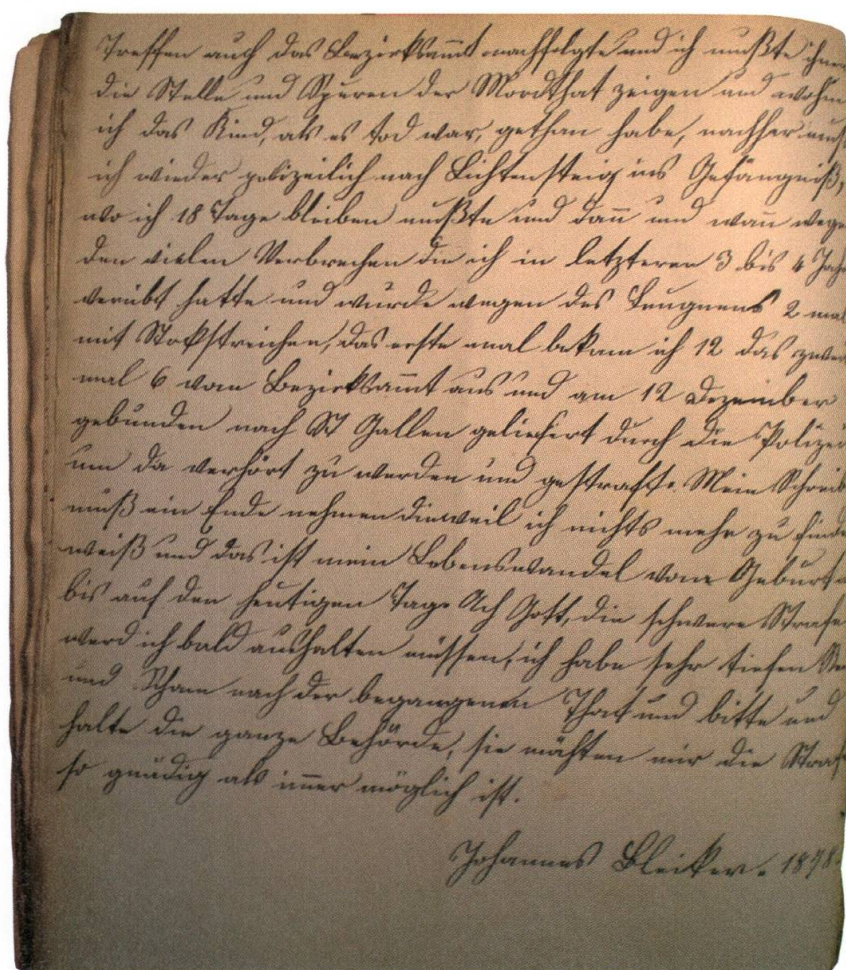 Treffen auch das Bezirksammt nachfolgte und ich mußte ihnen
die Stelle und Spuren der Mordthat zeigen und wohin
ich das Kind, als es tod war, gethan habe, nachher
ich wieder polizeilich nach Lichtensteig ins Gefängniß,
wo ich 18 Tage bleiben mußte und dañ und wañ wege
den vielen Verbrechen die ich in letzteren 3 bis 4 Jah
verübt hatte und wurde wegen des Leugnens 2 mal
mit Stokstreichen, das erste mal bekam ich 12 das zwei
mal 6 vom Bezirksammt aus und am 12 Dezember
gebunden nach St Gallen geliefert durch die Polizei
um da verhört zu werden und gestraft. Mein Schreib
muß ein Ende nehmen dieweil ich nichts mehr zu finde
weiß und das ist mein Lebenswandel vom Geburt
bis auf den heutigen Tage Ach Gott, die schwere Strafe
werd ich bald aushalten müssen, ich habe sehr tiefen
und Scham nach der begangenen That und bitte und
halte die ganze Behörde, sie möchten mir die Straf
so gnädig als im̃er möglich ist.
Johannes Bleiker. 1878.